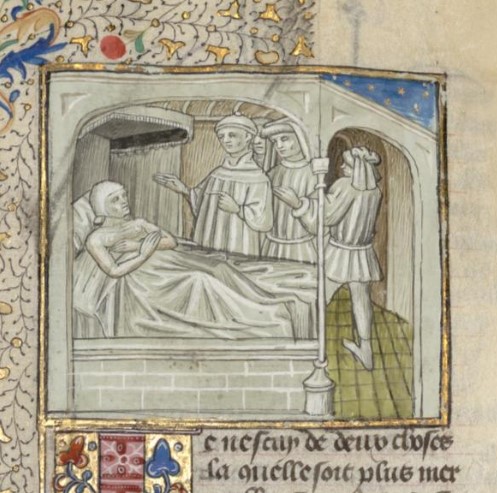 e nescay de deux choses
la quelle soit plus mer